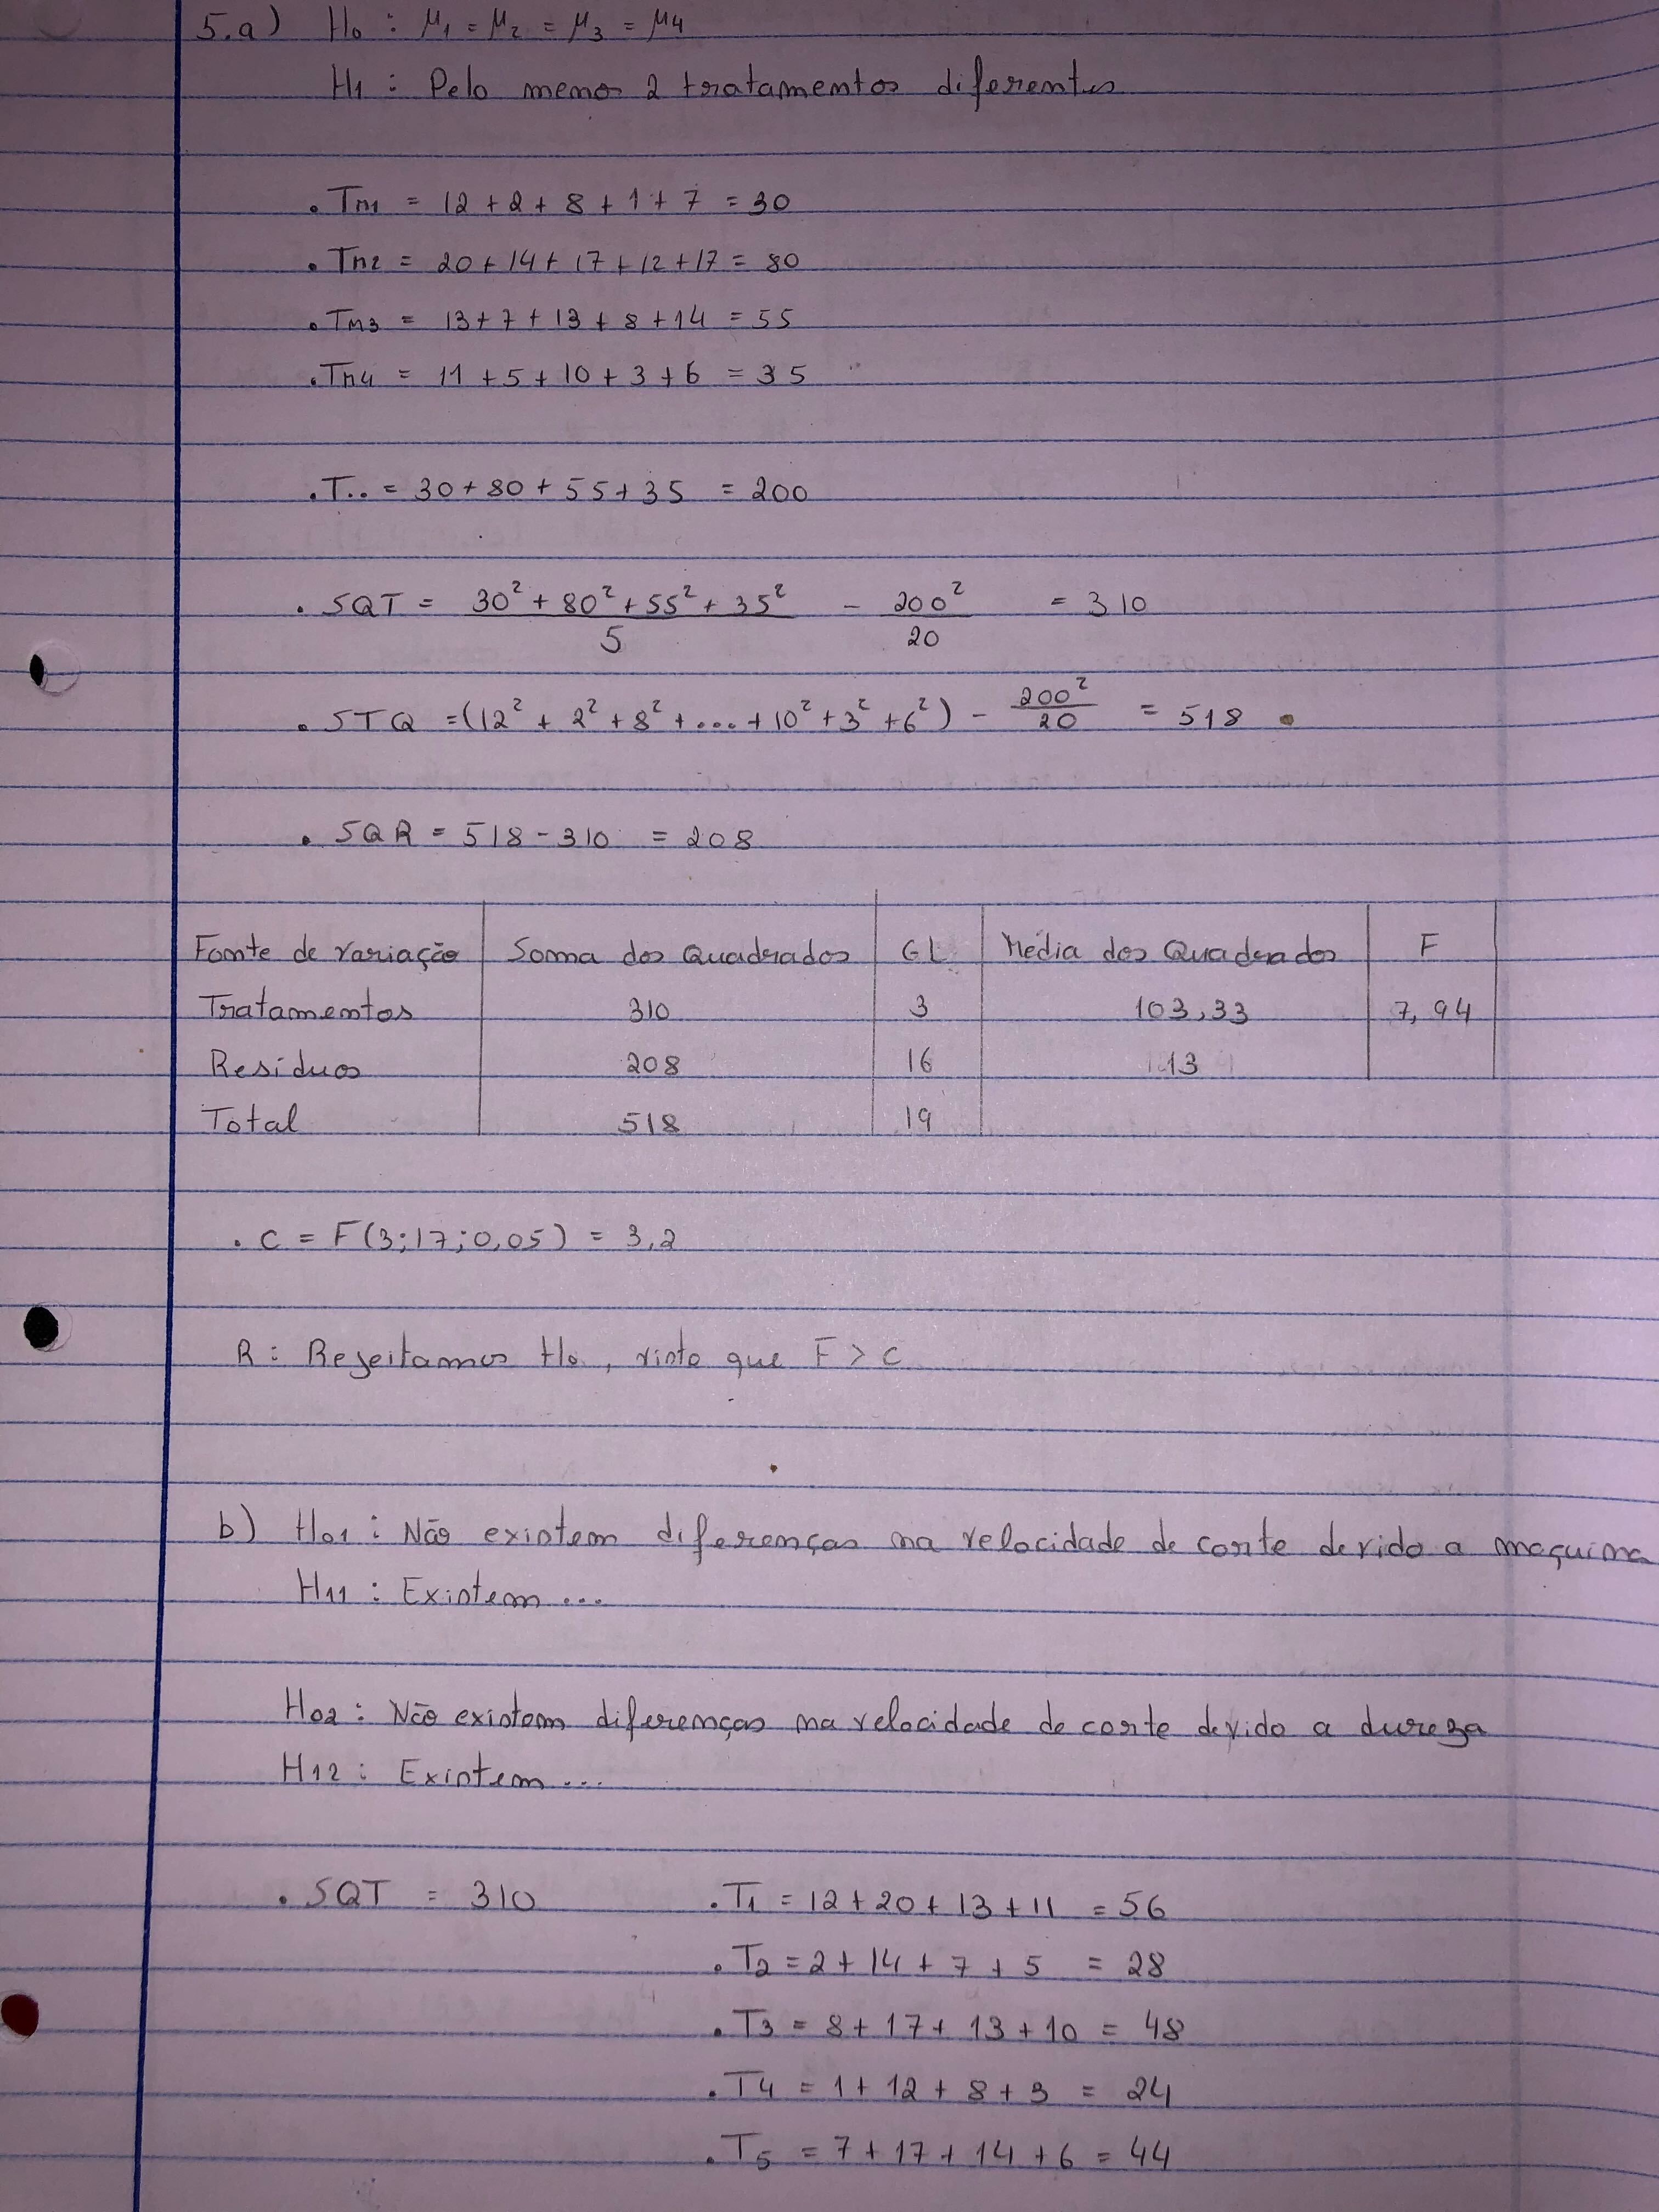 5.a) H₀ : μ₁ = μ₂ = μ₃ = μ₄
H₁ : Pelo menos 2 tratamentos diferentes
. Tm1 = 12 + 2 + 8 + 1 + 7 = 30
. Tm2 = 20 + 14 + 17 + 12 + 17 = 80
. Tm3 = 13 + 7 + 13 + 8 + 14 = 55
. Tm4 = 11 + 5 + 10 + 3 + 6 = 35
. T.. = 30 + 80 + 55 + 35 = 200
. SQT = (30² + 80² + 55² + 35²)/5 - 200²/20 = 310
. STQ = (12² + 2² + 8² + ... + 10² + 3² + 6²) - 200²/20 = 518 .
. SQR = 518 - 310 = 208
Fonte de variação | Soma dos Quadrados | GL | Média dos Quadrados | F
Tratamentos | 310 | 3 | 103,33 | 7,94
Resíduos | 208 | 16 | 13
Total | 518 | 19
. C = F(3;17;0,05) = 3,2
R: Rejeitamos H₀, visto que F > C
b) H01 : Não existem diferenças na velocidade de corte devido a maquina
H11 : Existem ...
H02 : Não existem diferenças na velocidade de corte devido a dureza
H12 : Existem ...
. SQT = 310 . T1 = 12 + 20 + 13 + 11 = 56
. T2 = 2 + 14 + 7 + 5 = 28
. T3 = 8 + 17 + 13 + 10 = 48
. T4 = 1 + 12 + 8 + 3 = 24
. T5 = 7 + 17 + 14 + 6 = 44